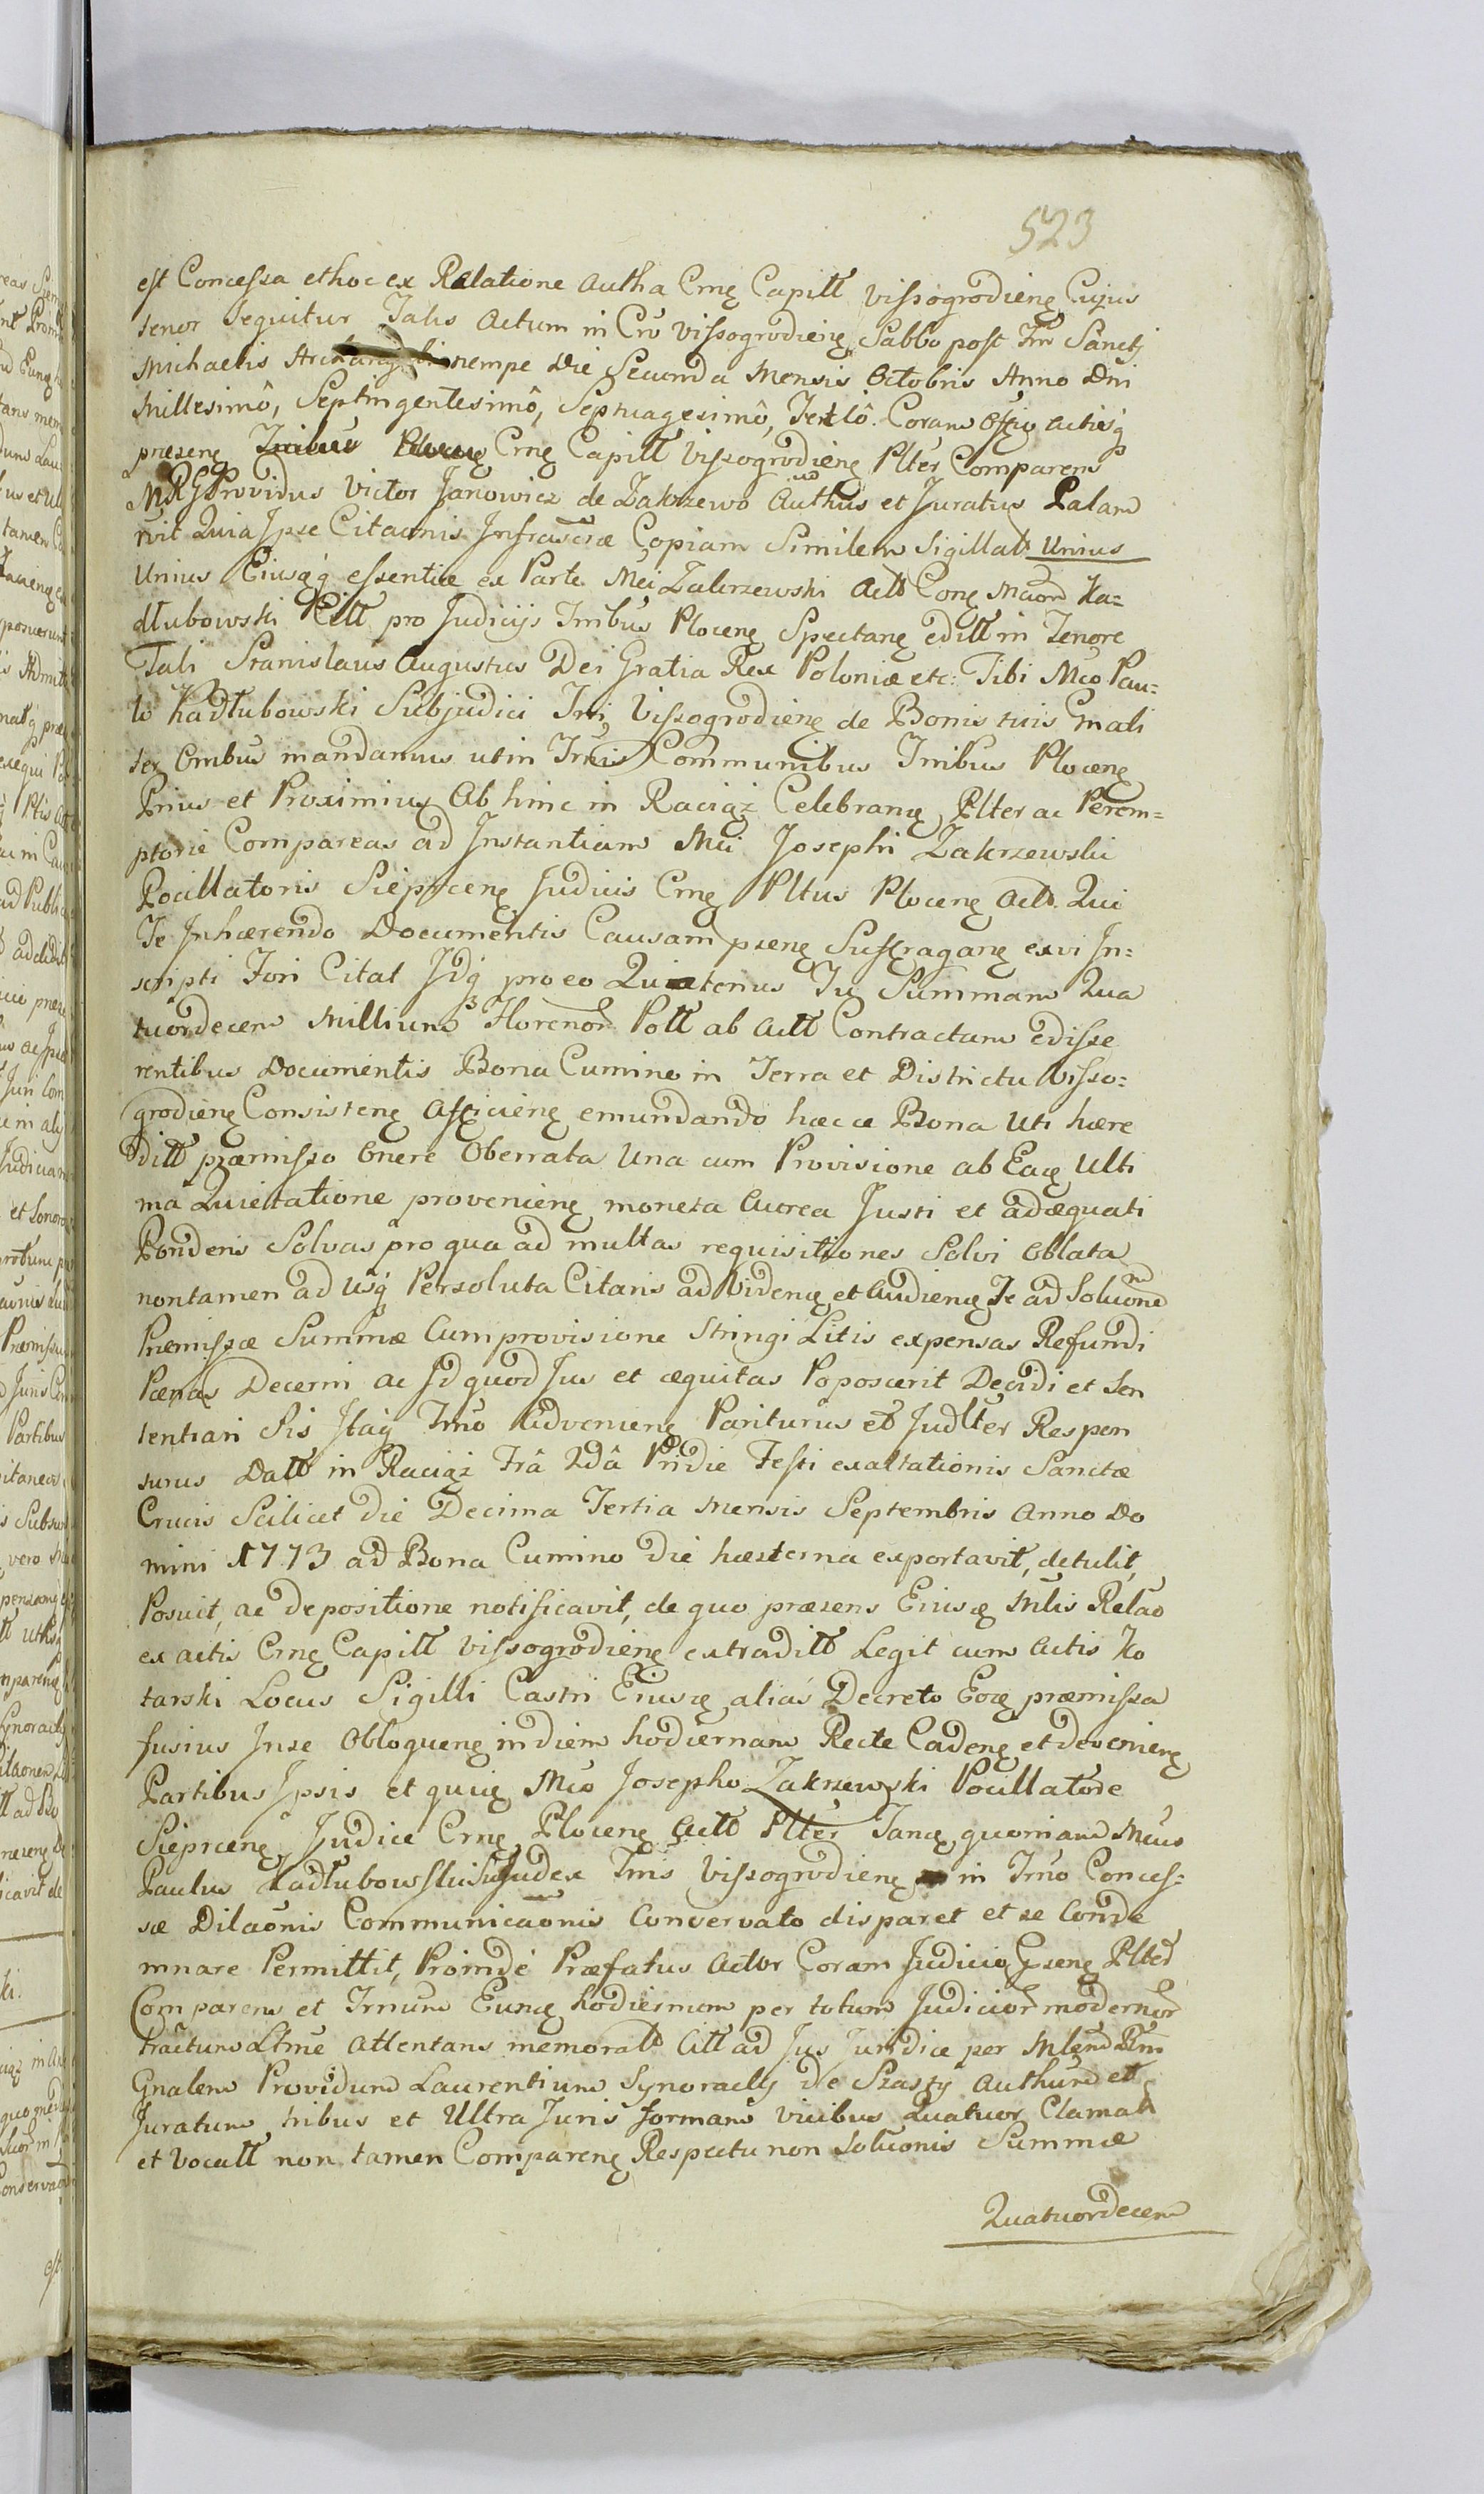 523
est Concessa et hoc ex Relatione Autha Crnę Capitt Vissogrodienę Cujus
tenor sequitur Talis Actum in Cro Vissogrodienę Sabbo post Fm Sancti
Michaelis nempe Die Secunda Mensis Octobris Anno Dni
Millesimô, Septingentesimô, Septuagesimô, Tertiô. Coram Offio Actisq
præsenę Crnę Capitt Vissogrodienę Plter Comparens
MRG Providus Victor Janowicz de Zakrzewo Authus et Juratus Palam
rvit Quia Ipse Citaonis Infrascræ Copiam Similem Sigillatt Unius
Unius Eiusqq essentiæ ex Parte Mci Zakrzewski Actt Conę Mcum Ka=
dłubowski Citt pro Judicijs Tmibus Plocenę Spectanę editt in Tenore
Tali Stanislaus Augustus Dei Gratia Rex Poloniæ etc: Tibi Mco Pau=
lo Kadłubowski Subjudici Tri Vissogrodienę de Bonis tuis Gnali
ter Omibus mandamus ut in Tmis Communibus Tmibus Plocenę
Prius et Proximius Ab hinc in Raciąż Celebranę Plter ac Perem=
ptorie Compareas ad Instantiam Mci Josephi Zakrzewski
Pocillatoris Sieprcenę Judicis Crnę Pltus Plocenę Actt. Qui
Te Inhærendo Documentis Causam psenę Suffraganę ex vi In=
scripti Fori Citat Idq pro eo Quatenus Tu Summam Qua
tuordecem Millium Florenor Pott ab Actt Contractam edisse
rentibus Documentis Bona Cumino in Terra et Districtu Visso=
grodienę Consistenę Afficienę emundando hæcce Bona Uti hære
ditt præmisso Onere Oberrata Una cum Provisione ab Eaę Ulti
ma Quietatione provenienę moneta Aurea Justi et adæquati
Ponderis Solvas pro qua ad multas requisitiones Solvi Oblata
non tamen ad usq Persoluta Citaris ad Videnę et Audienę Te ad Soluonem
Præmissæ Summæ Cum provisione Stringi Litis expensas Refundi
Pænas Decerni ac Id quod Jus et æquitas Poposcerit Decidi et Sen
tentiari Sis Itaq Tmo Advenienę Pariturus et Judlter Respon
surus Datt in Raciąż Frâ 2dâ Pridie Festi exaltationis Sanctæ
Crucis Scilicet die Decima Tertia Mensis Septembris Anno Do
mini 1773 ad Bona Cumino die hæsterna exportavit, detulit,
Posuit, ac depositione notificavit, de quo præsens Eiusę Mlis Relao
ex actis Crnę Capitt Vissogrodienę extraditt Legit cum Actis Ko
tarski Locus Sigilli Castri Eiusę alias Decreto Eoę præmissa
fusius In se Obloquenę in diem hodiernam Recte Cadenę et devenienę
Partibus Ipsis et quię Mco Josepho Zakrzewski Pocillatore
Sieprcenę Judice Crnę Plocenę Actt Plter Tanę quoniam Mcus
Paulus Kadłubowski SuJudex Tris Vissogrodienę in Tmo Conces=
sæ Dilaonis Communicaonis Conservato disparet et se Conde
mnare Permittit, Proindè Præfatus Actor Coram Judicio Psenę Plter
Comparens et Trnum Eunę hodiernum per totum Judicior modernor
tractum Ltme Attentans memoratt Citt ad Jus Juridice per Mlem
Gnalem Providum Laurentium Synoracky de Szasty Authum et
Juratum tribus et Ultra Juris formam vicibus Quatuor Clamatt
et Vocatt non tamen Comparenę Respectu non Soluonis Summæ
Quatuordecem